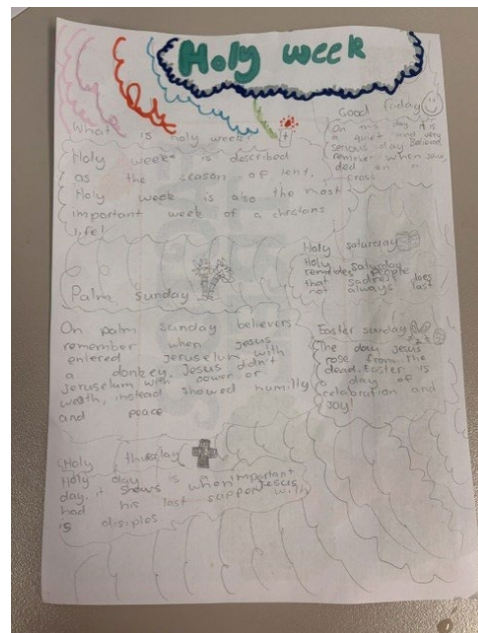 Holy week
What is holy week?
Holy week is described
as the season of lent,
Holy week is also the most
important week of a christans
life!
Palm Sunday
On palm sunday believers
remember when jesus
entered jeruselum with
a donkey. Jesus didn't
jeruselum with power or
welth, instead showed humilly
and peace
Holy thursday
Holy day is a important
day, it shows when Jesus
had his last supper with
is disiples
Good friday
On this day it is
a quiet and very
serious day. Believers
remember when Jesus
died on a
cross
Holy saturday
Holy saturday
remindes people
that sadness does
not always last
Easter sunday
The day jesus
rose from the
dead. Easter is
a day of
celebration and
joy!